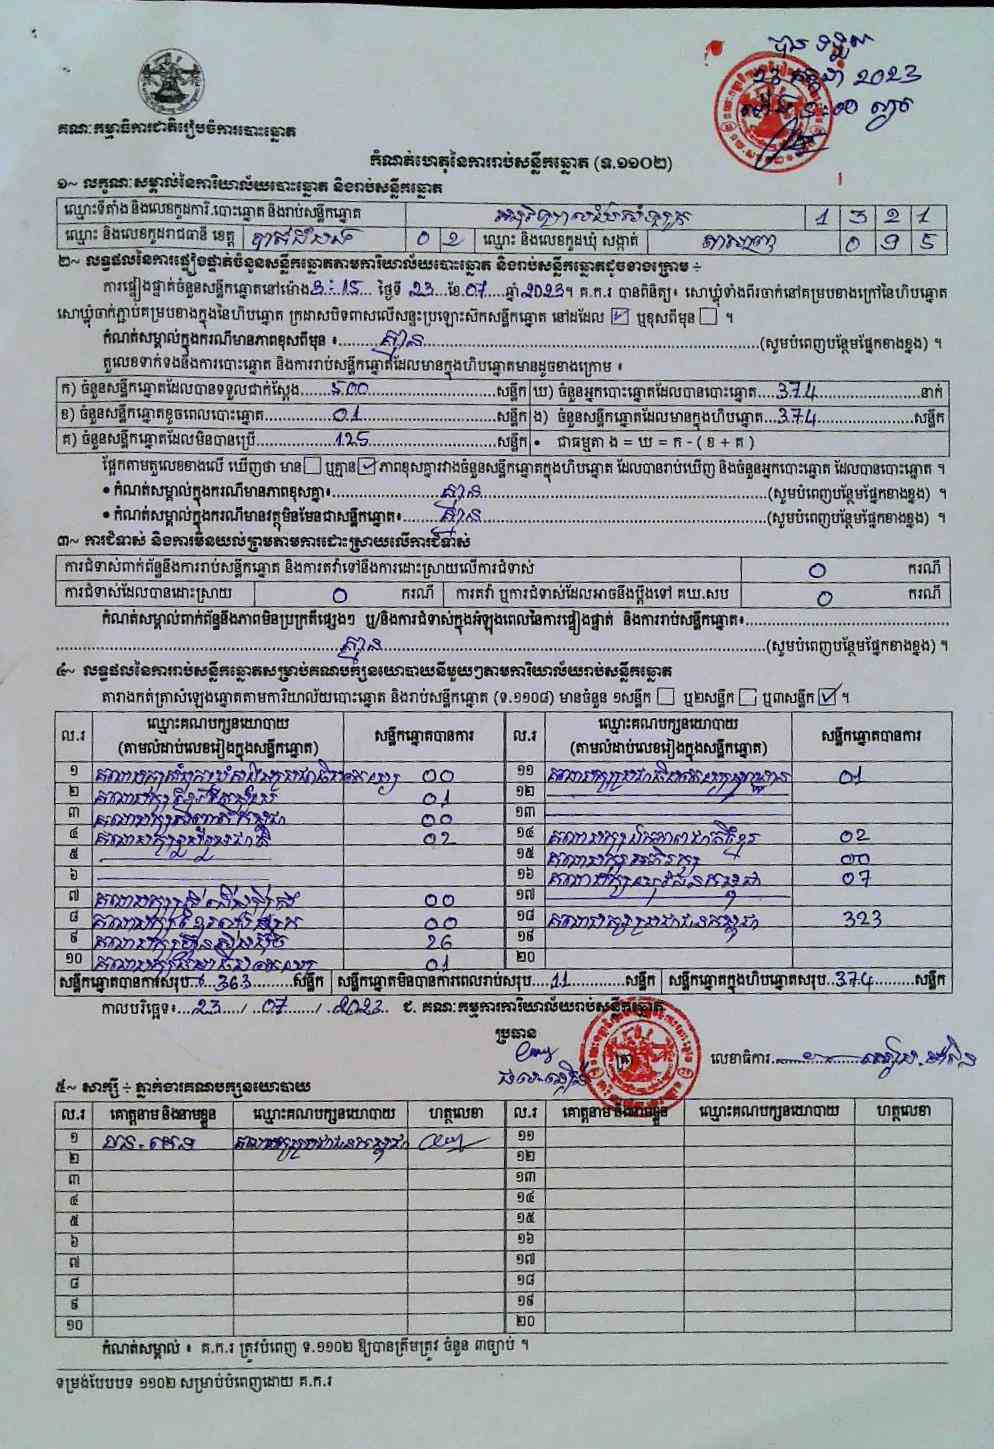 បានទទួល
23 កក្កដា 2023
គណៈកម្មាធិការជាតិរៀបចំការបោះឆ្នោត
កំណត់ហេតុនៃការរាប់សន្លឹកឆ្នោត (ទ.១១០២)
១~ លក្ខណៈសម្គាល់នៃការិយាល័យបោះឆ្នោត និងរាប់សន្លឹកឆ្នោត
ឈ្មោះទីតាំង និងលេខកូដការិ.បោះឆ្នោត និងរាប់សន្លឹកឆ្នោត 1 3 2 1
ឈ្មោះ និងលេខកូដរាជធានី ខេត្ត បាត់ដំបង 0 2 ឈ្មោះ និងលេខកូដឃុំ សង្កាត់ 0 9 5
២~ លទ្ធផលនៃការផ្ទៀងផ្ទាត់ចំនួនសន្លឹកឆ្នោតតាមការិយាល័យបោះឆ្នោត និងរាប់សន្លឹកឆ្នោតដូចខាងក្រោម ÷
ការផ្ទៀងផ្ទាត់ចំនួនសន្លឹកឆ្នោតនៅម៉ោង 3:15 ថ្ងៃទី 23 ខែ 07 ឆ្នាំ 2023។ គ.ក.រ បានពិនិត្យ៖ សោឃ្លុំទាំងពីរចាក់នៅគម្របខាងក្រៅនៃហិបឆ្នោត
សោឃ្លុំចាក់ភ្ជាប់គម្របខាងក្នុងនៃហិបឆ្នោត ក្រដាសបិទពាសលើសន្ទះប្រឡោះស៊កសន្លឹកឆ្នោត នៅដដែល ☑ ឬខុសពីមុន ☐ ។
កំណត់សម្គាល់ក្នុងករណីមានភាពខុសពីមុន ៖ គ្មាន (សូមបំពេញបន្ថែមផ្នែកខាងខ្នង) ។
តួលេខទាក់ទងនឹងការបោះឆ្នោត និងការរាប់សន្លឹកឆ្នោតដែលមានក្នុងហិបឆ្នោតមានដូចខាងក្រោម ៖
ក) ចំនួនសន្លឹកឆ្នោតដែលបានទទួលជាក់ស្តែង 500 សន្លឹក ឃ) ចំនួនអ្នកបោះឆ្នោតដែលបានបោះឆ្នោត 374 នាក់
ខ) ចំនួនសន្លឹកឆ្នោតខូចពេលបោះឆ្នោត 01 សន្លឹក ង) ចំនួនសន្លឹកឆ្នោតដែលមានក្នុងហិបឆ្នោត 374 សន្លឹក
គ) ចំនួនសន្លឹកឆ្នោតដែលមិនបានប្រើ 125 សន្លឹក • ជាធម្មតា ង = ឃ = ក - ( ខ + គ )
ផ្អែកតាមតួលេខខាងលើ ឃើញថា មាន ☐ ឬគ្មាន ☑ ភាពខុសគ្នារវាងចំនួនសន្លឹកឆ្នោតក្នុងហិបឆ្នោត ដែលបានរាប់ឃើញ និងចំនួនអ្នកបោះឆ្នោត ដែលបានបោះឆ្នោត ។
• កំណត់សម្គាល់ក្នុងករណីមានភាពខុសគ្នា៖ គ្មាន (សូមបំពេញបន្ថែមផ្នែកខាងខ្នង) ។
• កំណត់សម្គាល់ក្នុងករណីមានវត្ថុមិនមែនជាសន្លឹកឆ្នោត៖ គ្មាន (សូមបំពេញបន្ថែមផ្នែកខាងខ្នង) ។
៣~ ការជំទាស់ និងការមិនយល់ព្រមតាមការដោះស្រាយលើការជំទាស់
ការជំទាស់ពាក់ព័ន្ធនឹងការរាប់សន្លឹកឆ្នោត និងការតវ៉ាទៅនឹងការដោះស្រាយលើការជំទាស់ 0 ករណី
ការជំទាស់ដែលបានដោះស្រាយ 0 ករណី ការតវ៉ា ឬការជំទាស់ដែលអាចនឹងប្តឹងទៅ គឃ.សប 0 ករណី
កំណត់សម្គាល់ពាក់ព័ន្ធនឹងភាពមិនប្រក្រតីផ្សេងៗ ឬ/និងការជំទាស់ក្នុងអំឡុងពេលនៃការផ្ទៀងផ្ទាត់ និងការរាប់សន្លឹកឆ្នោត៖
គ្មាន (សូមបំពេញបន្ថែមផ្នែកខាងខ្នង) ។
៤~ លទ្ធផលនៃការរាប់សន្លឹកឆ្នោតសម្រាប់គណបក្សនយោបាយនីមួយៗតាមការិយាល័យរាប់សន្លឹកឆ្នោត
តារាងកត់ត្រាសំឡេងឆ្នោតតាមការិយាល័យបោះឆ្នោត និងរាប់សន្លឹកឆ្នោត (ទ.១១០៨) មានចំនួន ១សន្លឹក ☐ ឬ២សន្លឹក ☐ ឬ៣សន្លឹក ☑ ។
ល.រ ឈ្មោះគណបក្សនយោបាយ (តាមលំដាប់លេខរៀងក្នុងសន្លឹកឆ្នោត) សន្លឹកឆ្នោតបានការ ល.រ ឈ្មោះគណបក្សនយោបាយ (តាមលំដាប់លេខរៀងក្នុងសន្លឹកឆ្នោត) សន្លឹកឆ្នោតបានការ
១ គណបក្ស 00 ១១ គណបក្សប្រជាធិបតេយ្យ 01
២ គណបក្ស 01 ១២
៣ គណបក្ស 00 ១៣
៤ គណបក្ស 02 ១៤ គណបក្សឯកភាពជាតិខ្មែរ 02
៥ ១៥ គណបក្ស 00
៦ ១៦ គណបក្សយុវជនកម្ពុជា 07
៧ គណបក្ស 00 ១៧
៨ គណបក្ស 00 ១៨ គណបក្សប្រជាជនកម្ពុជា 323
៩ គណបក្សហ៊្វុនស៊ិនប៉ិច 26 ១៩
១០ គណបក្ស 01 ២០
សន្លឹកឆ្នោតបានការសរុប 363 សន្លឹក សន្លឹកឆ្នោតមិនបានការពេលរាប់សរុប 11 សន្លឹក សន្លឹកឆ្នោតក្នុងហិបឆ្នោតសរុប 374 សន្លឹក
កាលបរិច្ឆេទ៖ 23 / 07 / 2023 ជ. គណៈកម្មការការិយាល័យរាប់សន្លឹកឆ្នោត
ប្រធាន
លេខាធិការ
៥~ សាក្សី ÷ ភ្នាក់ងារគណបក្សនយោបាយ
ល.រ គោត្តនាម និងនាមខ្លួន ឈ្មោះគណបក្សនយោបាយ ហត្ថលេខា ល.រ គោត្តនាម និងនាមខ្លួន ឈ្មោះគណបក្សនយោបាយ ហត្ថលេខា
១ គណបក្សប្រជាជនកម្ពុជា ១១
២ ១២
៣ ១៣
៤ ១៤
៥ ១៥
៦ ១៦
៧ ១៧
៨ ១៨
៩ ១៩
១០ ២០
កំណត់សម្គាល់ ៖ គ.ក.រ ត្រូវបំពេញ ទ.១១០២ ឱ្យបានត្រឹមត្រូវ ចំនួន ៣ច្បាប់ ។
ទម្រង់បែបបទ ១១០២ សម្រាប់បំពេញដោយ គ.ក.រ